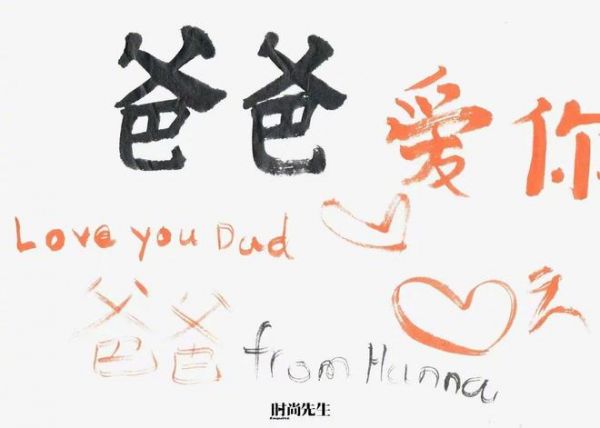 爸爸爱你
Love you Dad
爸爸 from Hanna
时尚先生
Esquire